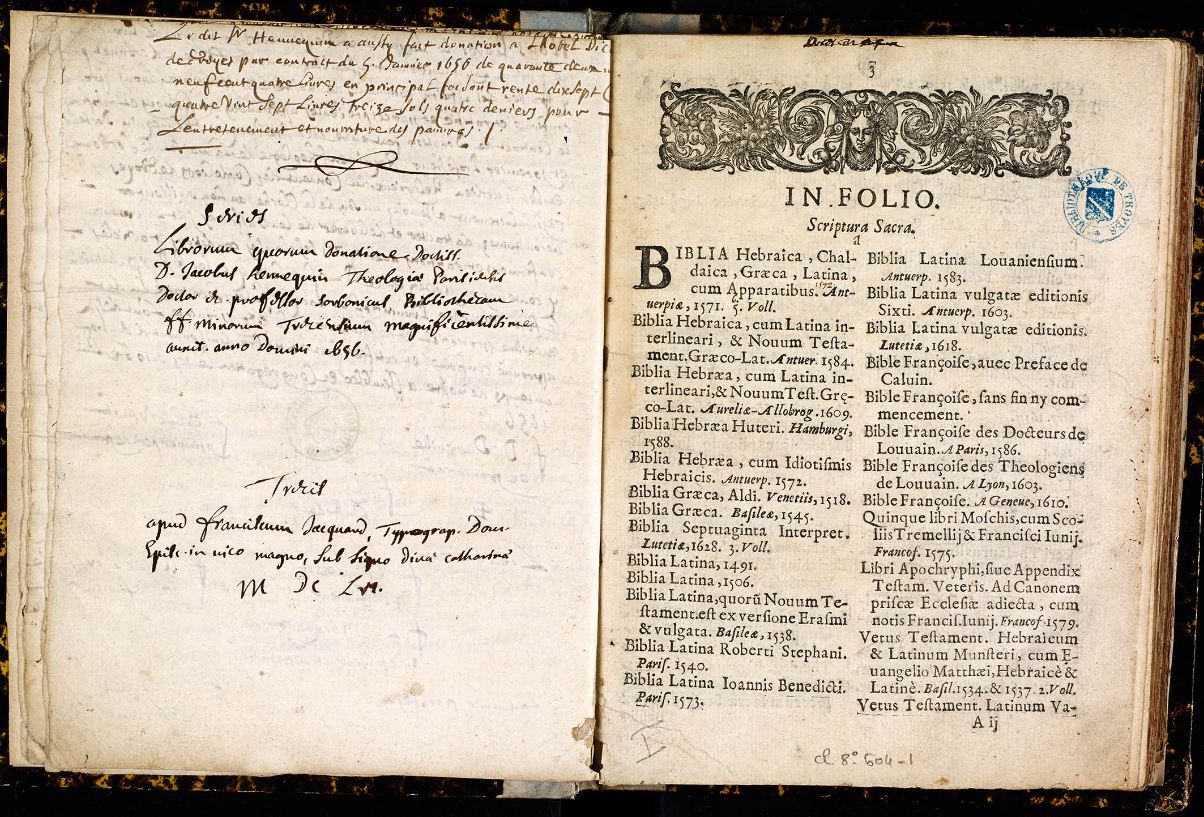 Le dit Sr Hennequin a aussy fait donation a Lhostel Dieu
de troyes par contract du 5. Janvier 1656 de quarante deux m
neuf cent quatre livres en principal faisant rente dixsept C
quatre vint sept Livres treize sols quatre deniers pour
Lentretenement et nourriture des pauvres
Series
Librorum quorum donatione, Doctiss.
D. Jacobus hennequin Theologiæ Parisiensis
Doctor et professor sorbonicus Bibliothecam
ff. minorum Trecensium magnificentissime
auxit. anno Domini 1656.
Trecis
apud franciscum Jacquard, Typograp. Dom
Episc. in vico magno, sub signo divæ catharinæ
M DC LVI.
3
IN FOLIO.
Scriptura Sacra.
a
BIBLIA Hebraica, Chal-
daica, Græca, Latina,
cum Apparatibus. Ant-
uerpiæ, 1571. Voll.
Biblia Hebraica, cum Latina in-
terlineari, & Nouum Testa-
ment. Græco-Lat. Antuer. 1584.
Biblia Hebræa, cum Latina in-
terlineari, & Nouum Test. Gre-
co-Lat. Aureliæ-Allobrog. 1609.
Biblia Hebræa Huteri. Hamburgi,
1588.
Biblia Hebræa, cum Idiotismis
Hebraicis. Antuerp. 1572.
Biblia Græca, Aldi. Venetiis, 1518.
Biblia Græca. Basileæ, 1545.
Biblia Septuaginta Interpret.
Lutetiæ, 1628. 3. Voll.
Biblia Latina, 1491.
Biblia Latina, 1506.
Biblia Latina, quorũ Nouum Te-
stament. est ex versione Erasmi
& vulgata. Basileæ, 1538.
Biblia Latina Roberti Stephani.
Paris. 1540.
Biblia Latina Ioannis Benedicti.
Paris. 1573.
Biblia Latina Louaniensium.
Antuerp. 1583.
Biblia Latina vulgatæ editionis
Sixti. Antuerp. 1603.
Biblia Latina vulgatæ editionis.
Lutetiæ, 1618.
Bible Françoise, auec Preface de
Caluin.
Bible Françoise, sans fin ny com-
mencement.
Bible Françoise des Docteurs de
Louuain. A Paris, 1586.
Bible Françoise des Theologiens
de Louuain. A Lyon, 1603.
Bible Françoise. A Geneue, 1610.
Quinque libri Moschis, cum Sco-
liis Tremellij & Francisci Iunij.
Francof. 1575.
Libri Apochryphi, siue Appendix
Testam. Veteris. Ad Canonem
priscæ Ecclesiæ adiecta, cum
notis Francis. Iunij. Francof. 1579.
Vetus Testament. Hebraicum
& Latinum Munsteri, cum E-
uangelio Matthæi, Hebraicè &
Latinè. Basil. 1534. & 1537. 2. Voll.
Vetus Testament. Latinum Va-
A ij
cl. 8° 604-1
BIBLIOTHÈQUE DE TROYES